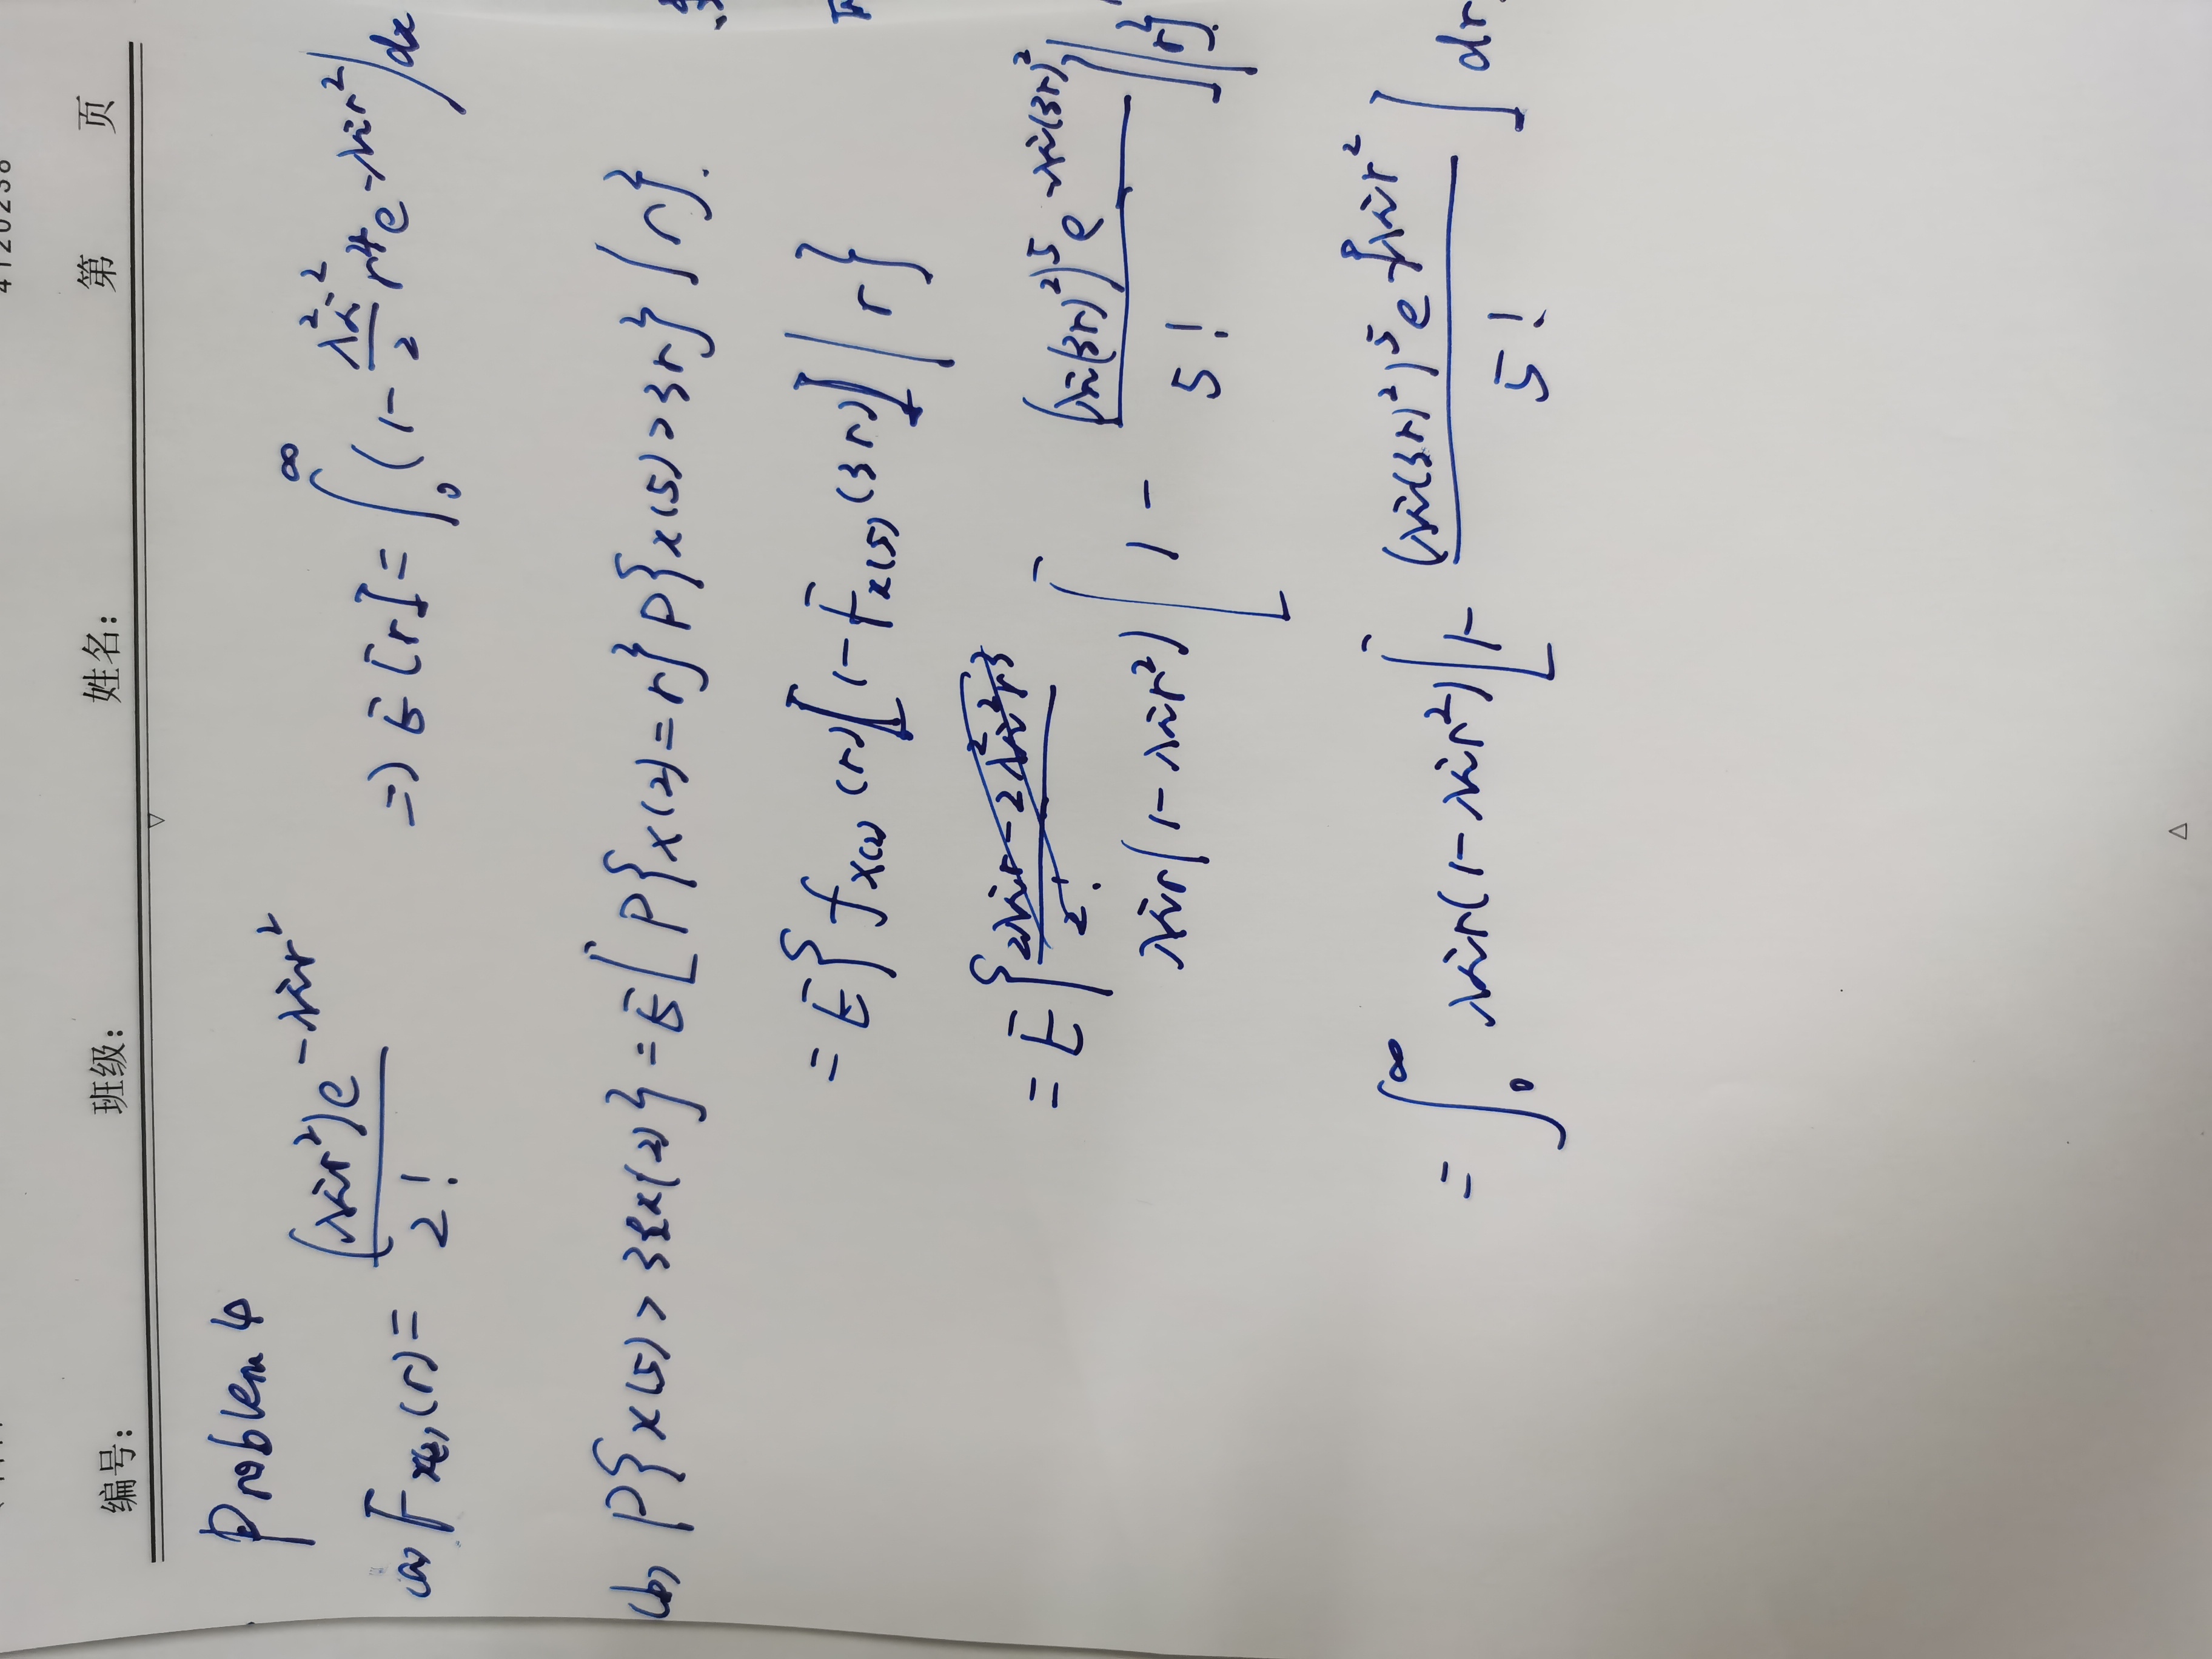 4120238
编号： 班级： 姓名： 第 页
Problem 4
(a) F_{X(2)}(r) = \frac{(λπr^2)e^{-λπr^2}}{2!} ⇒ E[r] = ∫_0^∞ (1 - \frac{λ^2π^2}{2} r^4 e^{-λπr^2}) dx
(b) P{x(5) > 3x(2)} = E[P{x(2) = r} P{x(5) > 3r} | r}.
= E{f_{X(2)}(r)[1 - F_{x(5)}(3r)] | r}
= E{\frac{2λπr - 2λ^2π^2r^3}{2!}
λπr(1 - λπr^2) [1 - \frac{(λπ(3r)^2)^5 e^{-λπ(3r)^2}}{5!}] | r}.
= ∫_0^∞ λπr(1 - λπr^2) [1 - \frac{(λπ(3r)^2)^5 e^{-9λπr^2}}{5!}] dr.